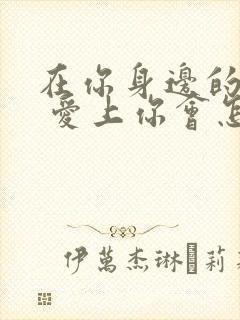 在你身邊的
愛上你會怎
伊萬杰琳·莉莉